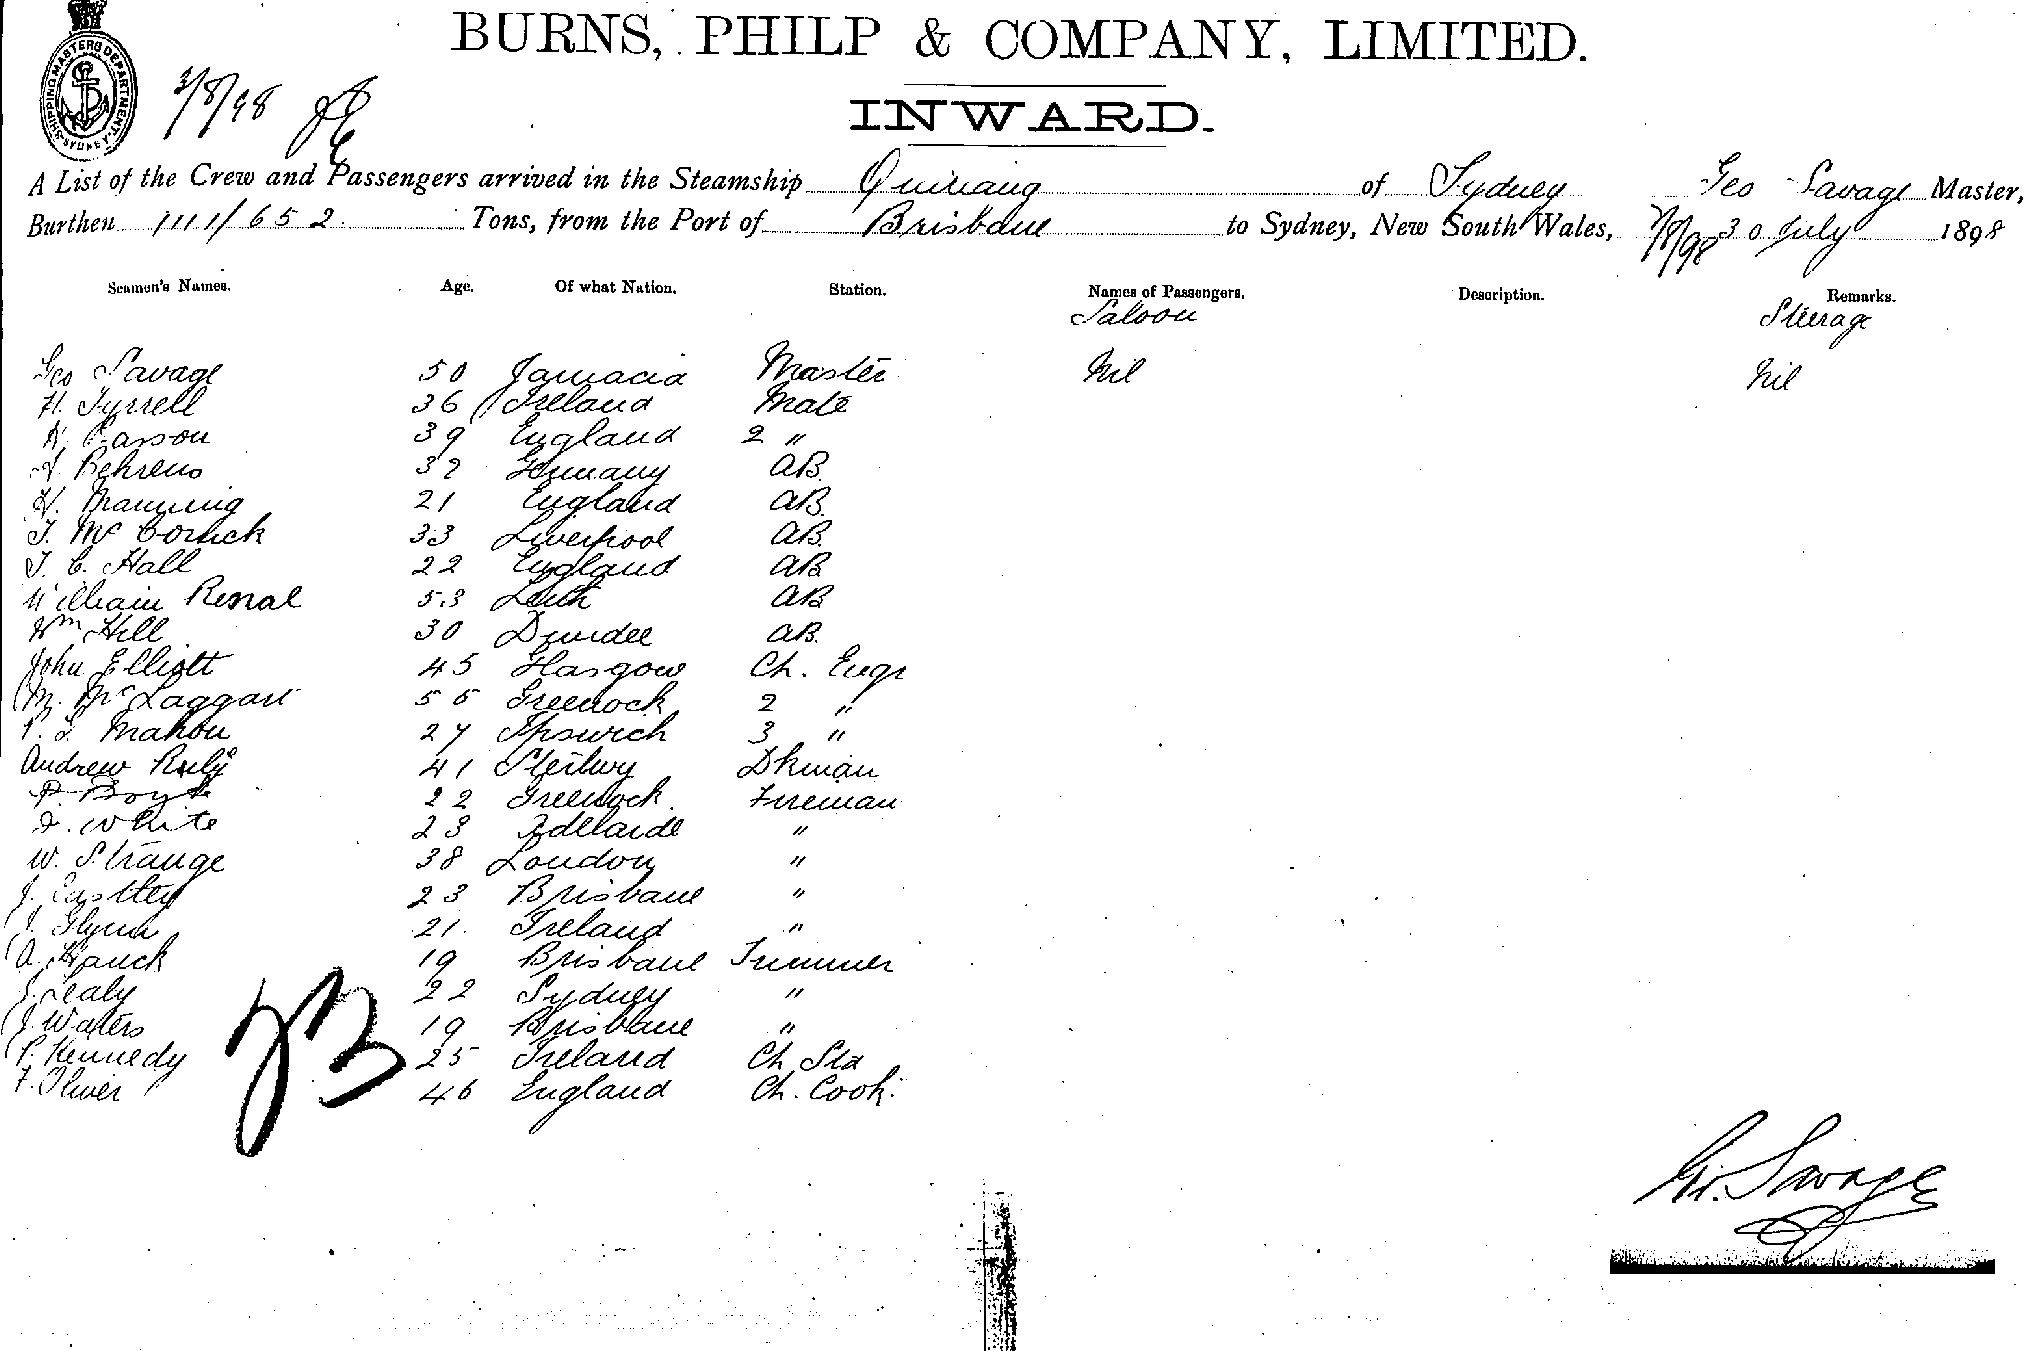 BURNS, PHILP & COMPANY, LIMITED.
SHIPPING MASTERS DEPARTMENT. SYDNEY
INWARD.
A List of the Crew and Passengers arrived in the Steamship Quiraing of Sydney Geo Savage Master,
Burthen 1111/652 Tons, from the Port of Brisbane to Sydney, New South Wales, 30 July 1898
Seamen's Names. Age. Of what Nation. Station. Names of Passengers. Description. Remarks.
Saloon Steerage
Geo Savage 50 Jamacia Master Nil Nil
H. Tyrrell 36 Ireland Mate
Parson 39 England 2 "
Behrens 32 Germany AB.
H. Manning 21 England AB.
T. Mc Cormick 33 Liverpool AB.
T. C. Hall 22 England AB
William Resnal 53 Leith AB
Wm Hill 30 Dundee AB.
John Elliott 45 Glasgow Ch. Engr
M. McTaggart 55 Greenock 2 "
Mahon 27 Ipswich 3 "
Andrew 41 Dkman
Boyle 22 Greenock Fireman
White 23 Adelaide "
W. Strange 38 London "
J. 23 Brisbane "
J. Glynn 21. Ireland "
A. Hauck 19 Brisbane Trimmer
Lealy 22 Sydney "
J. Waters 19 Brisbane "
P. Kennedy 25 Ireland Ch Std
F. Oliver 46 England Ch. Cook.
23
Geo. Savage